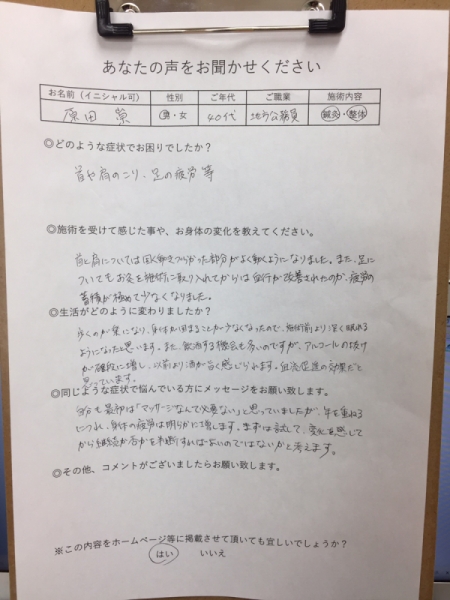 あなたの声をお聞かせください
お名前（イニシャル可） 性別 ご年代 ご職業 施術内容
原田 男・女 40代 地方公務員 鍼灸・整体
◎どのような症状でお困りでしたか？
首や肩のこり、足の疲労 等
◎施術を受けて感じた事や、お身体の変化を教えてください。
首と肩については固く動きづらかった部分がよく動くようになりました。また、足に
ついてもお灸を施術に取り入れてからは血行が改善されたのか、疲労の
蓄積が極めて少なくなりました。
◎生活がどのように変わりましたか？
歩くのが楽になり、身体が固まることが少なくなったので、施術前より深く眠れる
ようになったと思います。また、飲酒する機会も多いのですが、アルコールの抜け
が確段に増し、以前より酒が旨く感じられます。血流促進の効果だと
思っています。
◎同じような症状で悩んでいる方にメッセージをお願い致します。
自分も最初は「マッサージなんて必要ない」と思っていましたが、年を重ねる
につれ、身体の疲労は明らかに増します。まずは試して、変化を感じて
から継続か否かを判断すればよいのではないかと考えます。
◎その他、コメントがございましたらお願い致します。
※この内容をホームページ等に掲載させて頂いても宜しいでしょうか？
はい いいえ